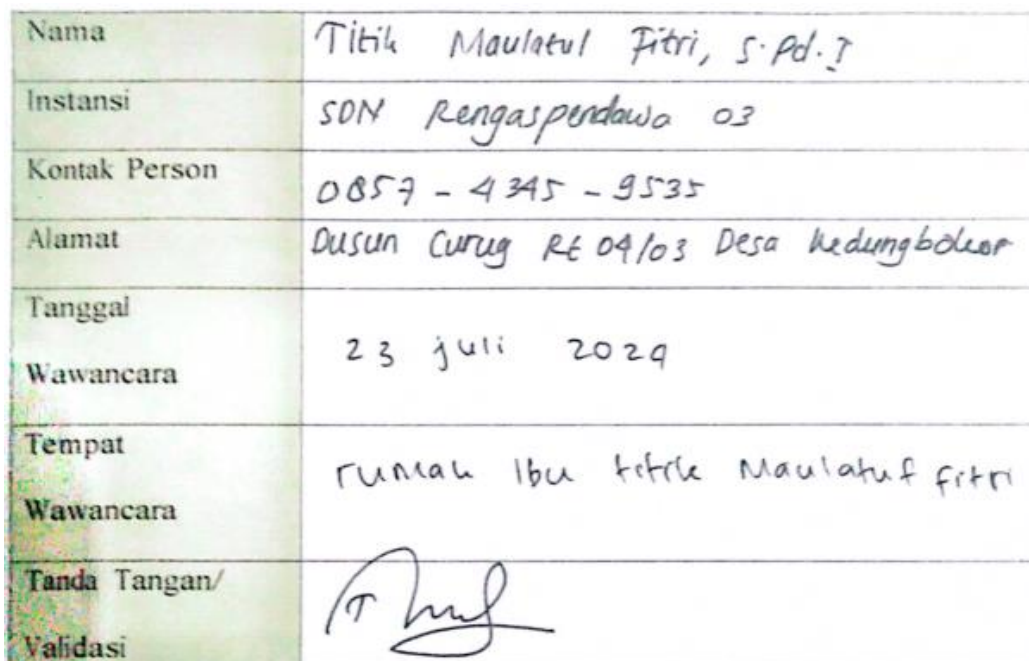 Nama Titik Maulatul Fitri, S.Pd.I
Instansi SDN Rengaspendawa 03
Kontak Person 0857 - 4345 - 9535
Alamat Dusun Curug Rt 04/03 Desa Kedungbokor
Tanggal
Wawancara 23 juli 2024
Tempat
Wawancara rumah Ibu titik Maulatul fitri
Tanda Tangan/
Validasi